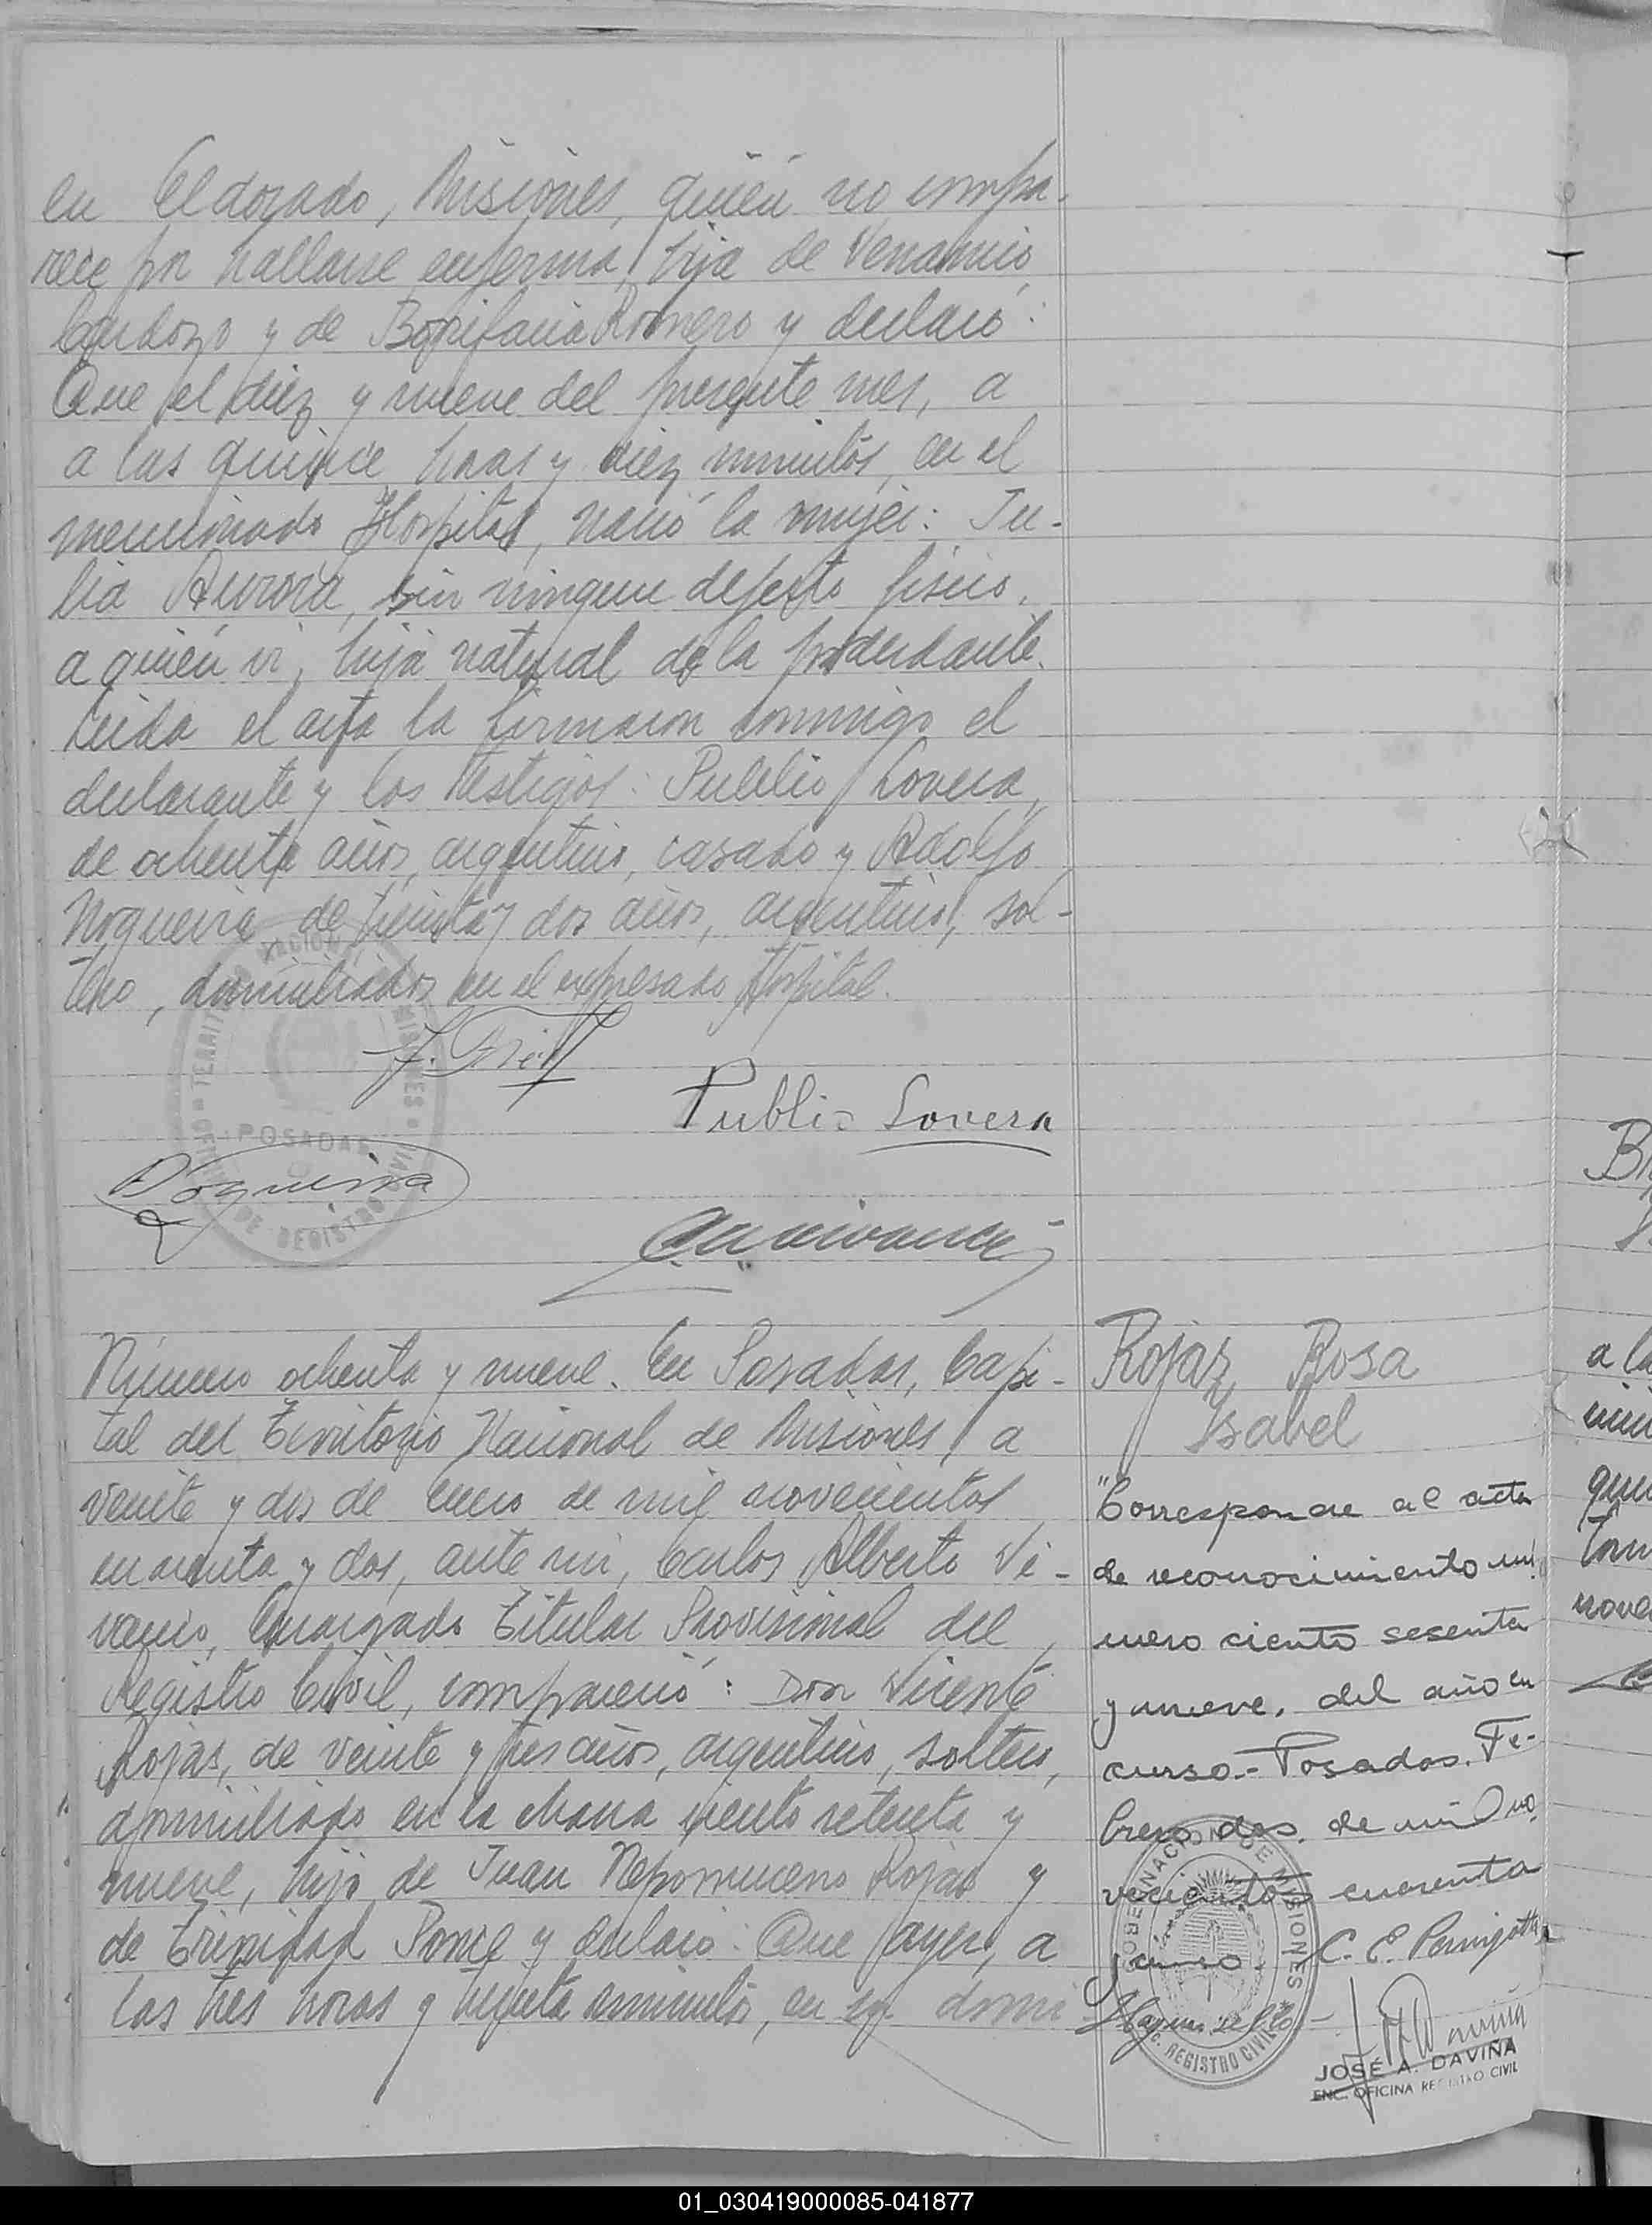 en Eldorado, Misiones, quién no compa-
rece por hallarse enferma, hija de Venancio
Cardozo y de Bonifacia Romero y declaró:
Que el diez y nueve del presente mes, a
a las quince horas y diez minutos, en el
mencionado Hospital, nació la mujer: Ju-
lia Aurora, sin ningun defecto físico,
a quién vi, hija natural de la poderdante.
Leida el acta la firmaron conmigo el
declarante y los testigos: Publio Lovera,
de ochenta años, argentino, casado y Adolfo
Nogueira de treinta y dos años, argentino, sol-
tero, domiciliados en el expresado Hospital.
Publio Lovera
Nogueira
TERRITORIO NACIONAL MISIONES
POSADAS
REGISTRO CIVIL
Número ochenta y nueve. En Posadas, Capi-
tal del Territorio Nacional de Misiones, a
veinte y dos de enero de mil novecientos
cuarenta y dos, ante mi, Carlos Alberto Vi-
vanco, Encargado Titular Provisional del
Registro Civil, compareció: Don Vicente
Rojas, de veinte y tres años, argentino, soltero,
domiciliado en la chacra ciento setenta y
nueve, hijo de Juan Nepomuceno Rojas y
de Trinidad Ponce y declaró: Que ayer, a
las tres horas y treinta minutos, en su domi
Rojas, Rosa
Isabel
"Corresponde al acta
de reconocimiento nú
mero ciento sesenta
y nueve, del año en
curso.- Posadas, Fe-
brero dos, de mil no
vecientos cuarenta
GOBERNACION DE MISIONES
REGISTRO CIVIL
JOSÉ A. DAVIÑA
ENC. OFICINA REGISTRO CIVIL
a la
que
nove
01_030419000085-041877